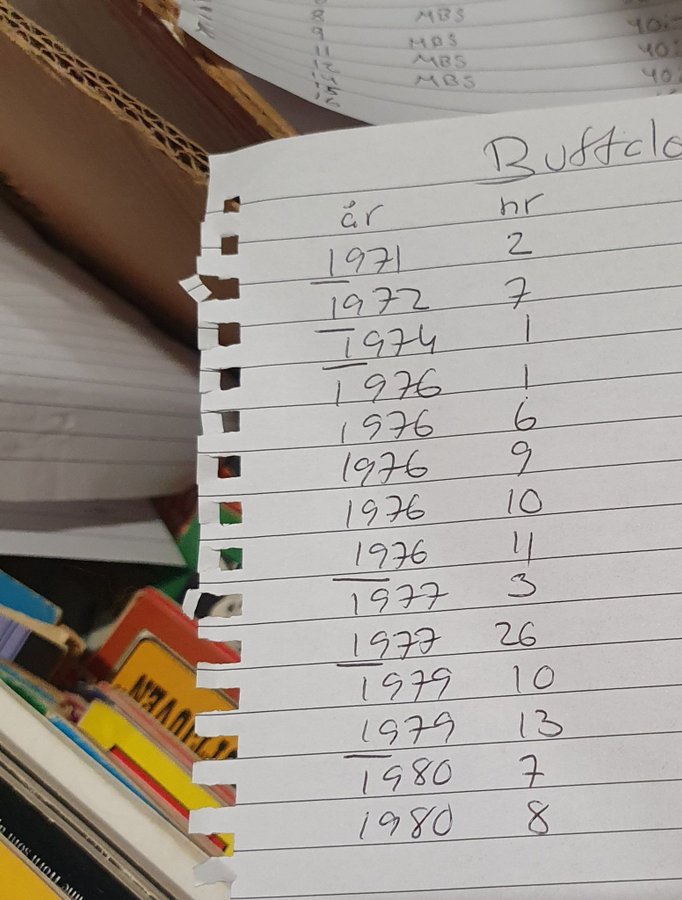 8 MBS
9 MBS 40:
11 MBS 40:
12 MBS 40:
Buffalo
år nr
1971 2
1972 7
1974 1
1976 1
1976 6
1976 9
1976 10
1976 11
1977 3
1977 26
1979 10
1979 13
1980 7
1980 8